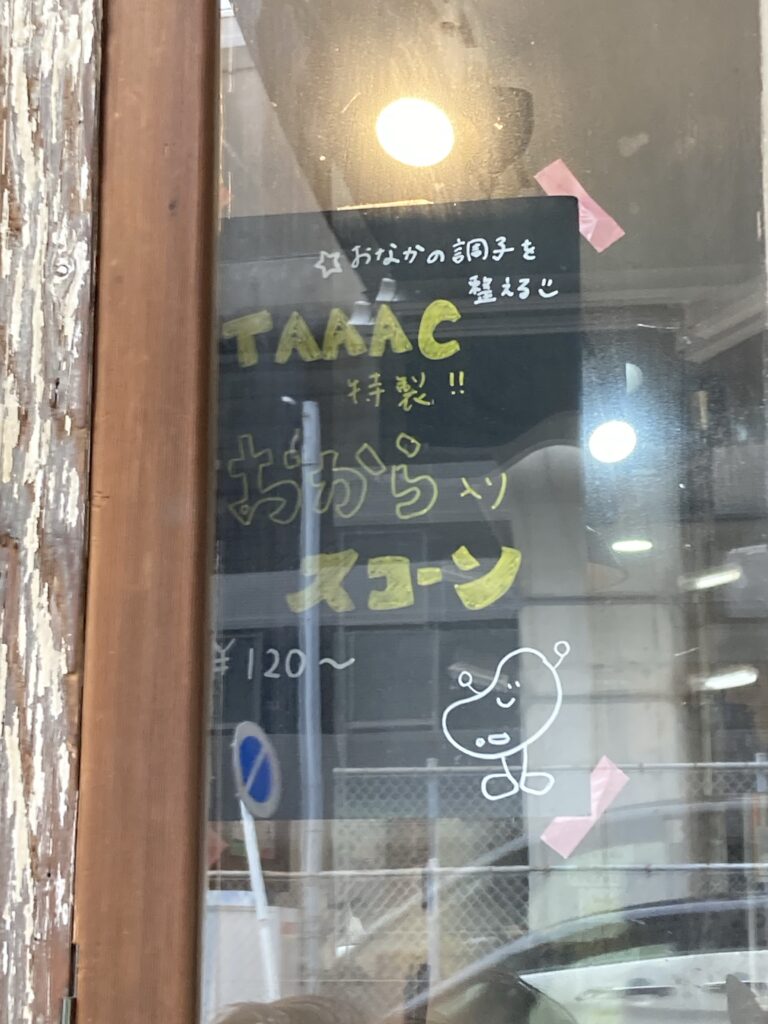 ☆おなかの調子を
整える
TAAAC
特製!!
おから入り
スコーン
¥120〜